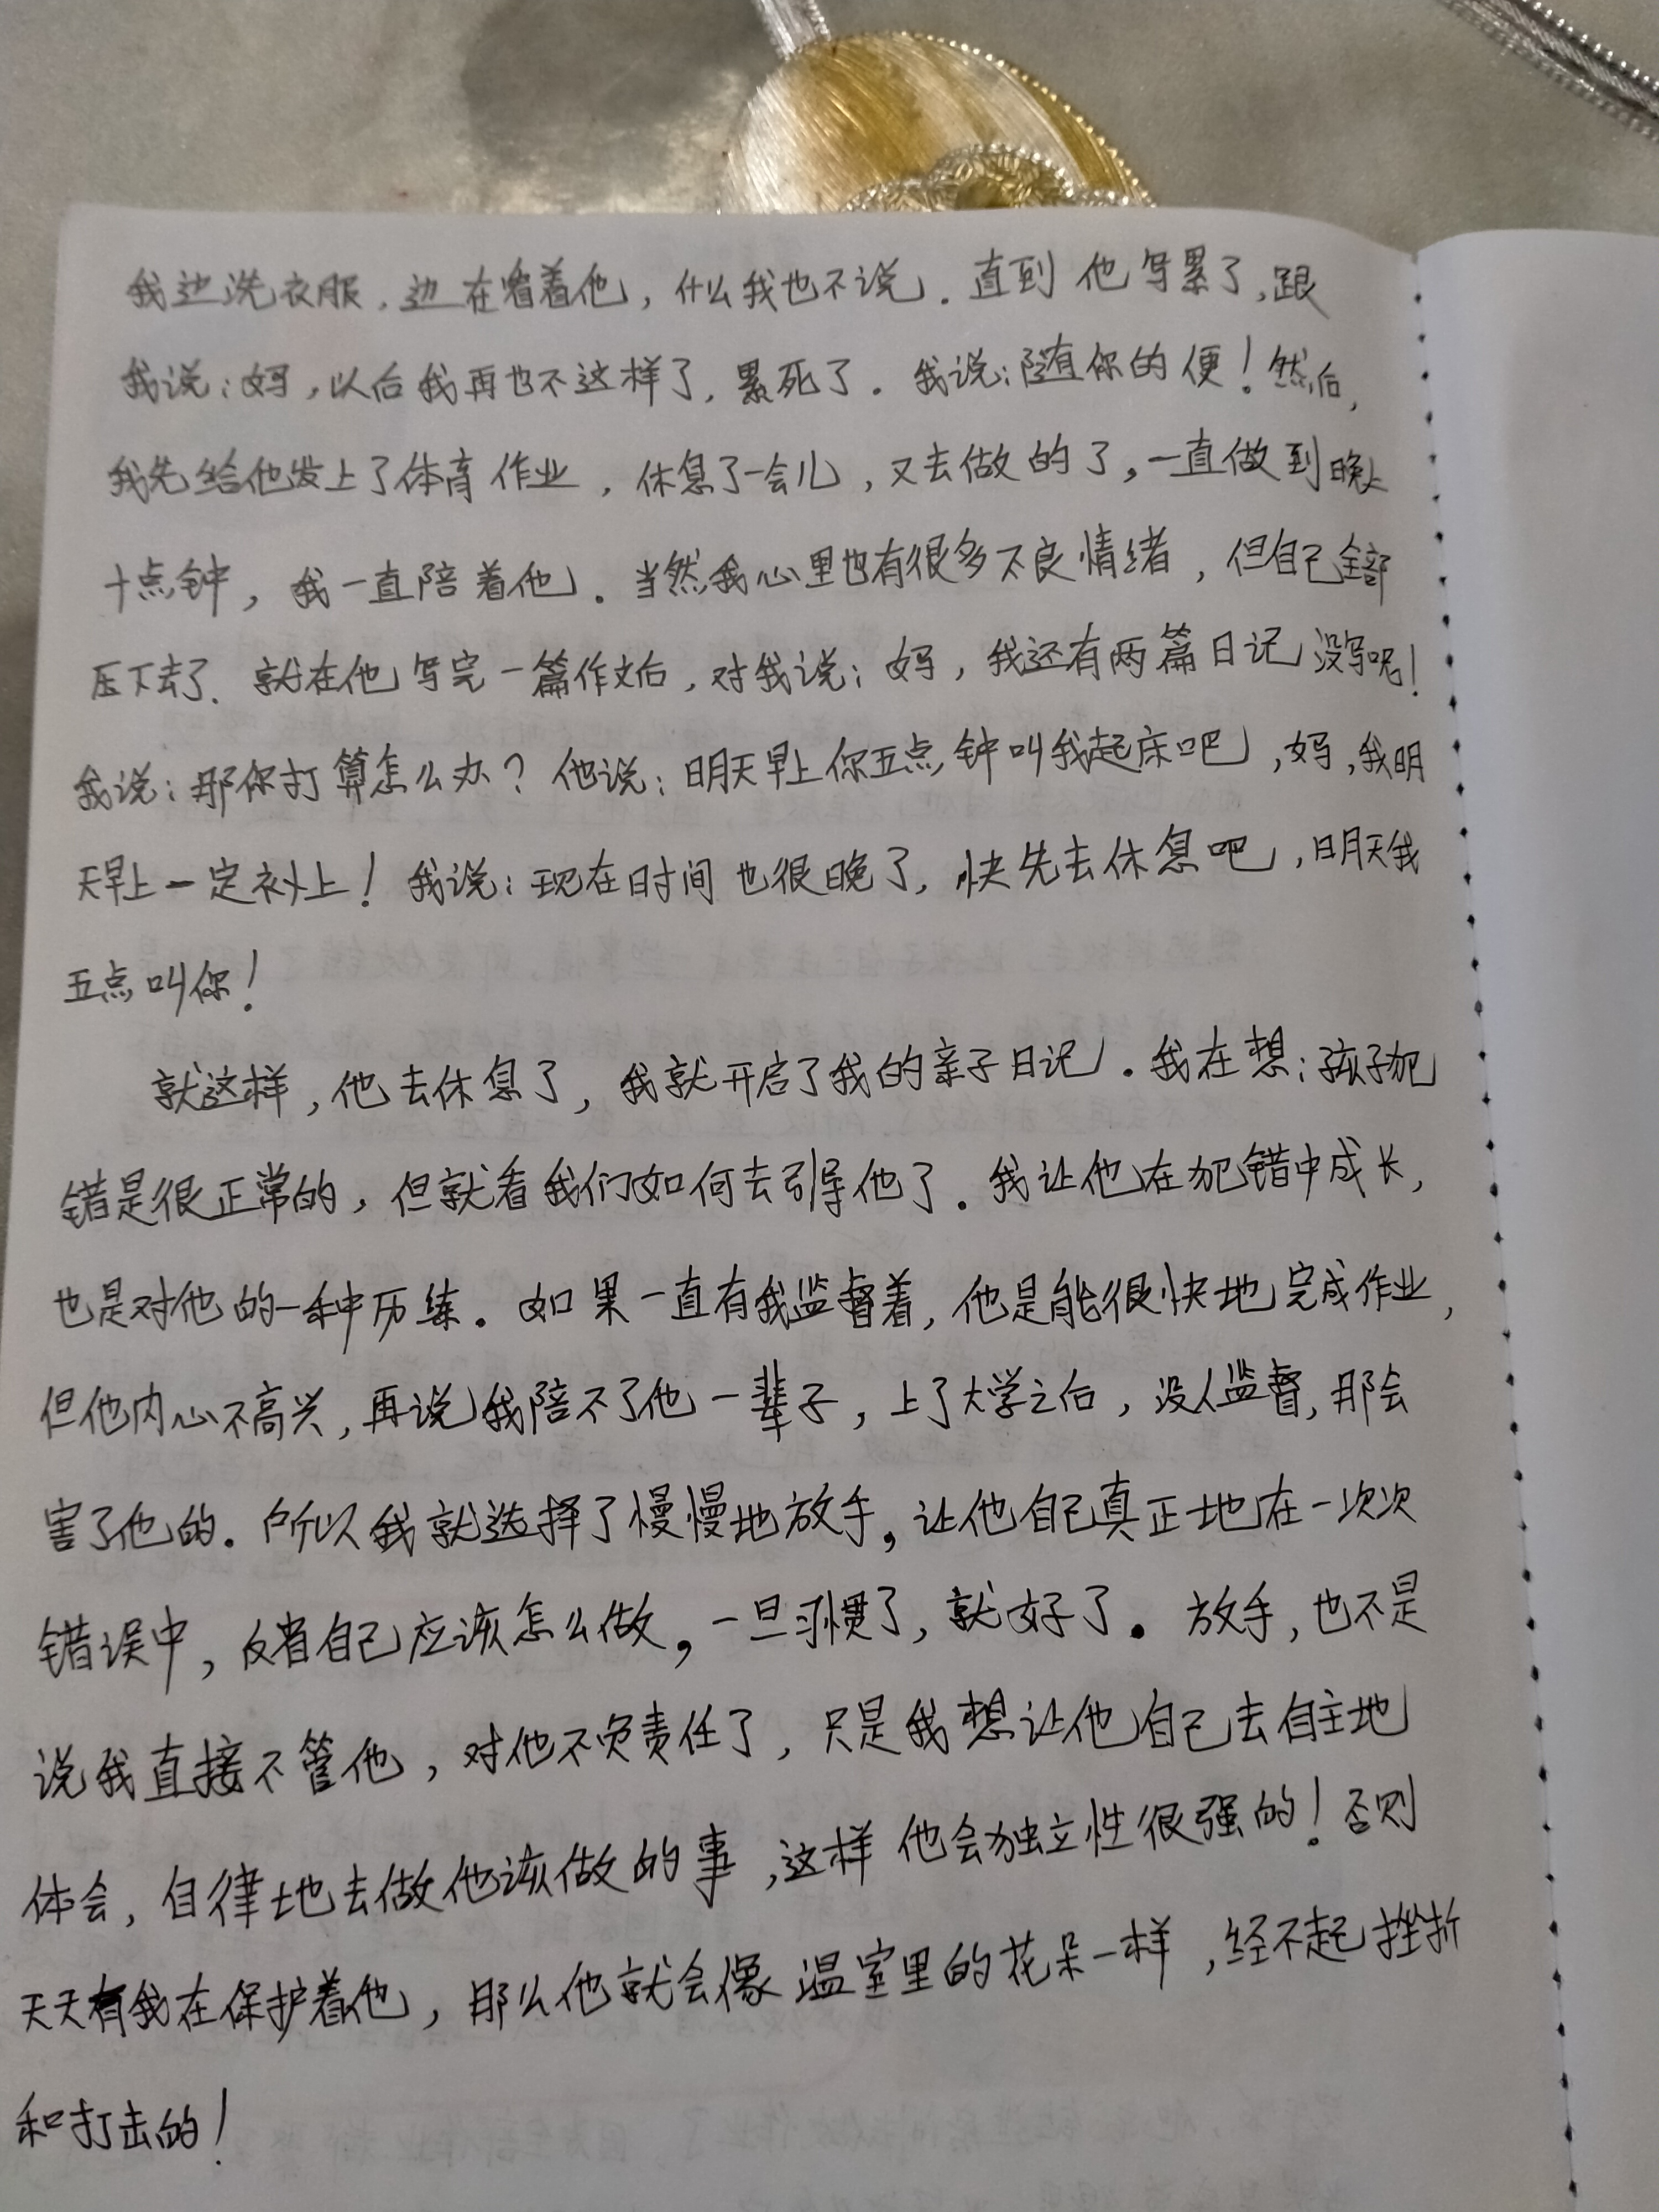 我边洗衣服，边在看着他，什么我也不说．直到他写累了，跟
我说：妈，以后我再也不这样了，累死了．我说：随你的便！然后，
我先给他发上了体育作业，休息了一会儿，又去做的了，一直做到晚上
十点钟，我一直陪着他．当然我心里也有很多不良情绪，但自己全部
压下去了．就在他写完一篇作文后，对我说：妈，我还有两篇日记没写呢！
我说：那你打算怎么办？他说：明天早上你五点钟叫我起床吧，妈，我明
天早上一定补上！我说：现在时间也很晚了，快先去休息吧，明天我
五点叫你！
就这样，他去休息了，我就开启了我的亲子日记．我在想：孩子犯
错是很正常的，但就看我们如何去引导他了．我让他在犯错中成长，
也是对他的一种历练．如果一直有我监督着，他是能很快地完成作业，
但他内心不高兴，再说我陪不了他一辈子，上了大学之后，没人监督，那会
害了他的．所以我就选择了慢慢地放手，让他自己真正地在一次次
错误中，反省自己应该怎么做，一旦习惯了，就好了．放手，也不是
说我直接不管他，对他不负责任了，只是我想让他自己去自主地
体会，自律地去做他该做的事，这样他会独立性很强的！否则
天天有我在保护着他，那么他就会像温室里的花朵一样，经不起挫折
和打击的！